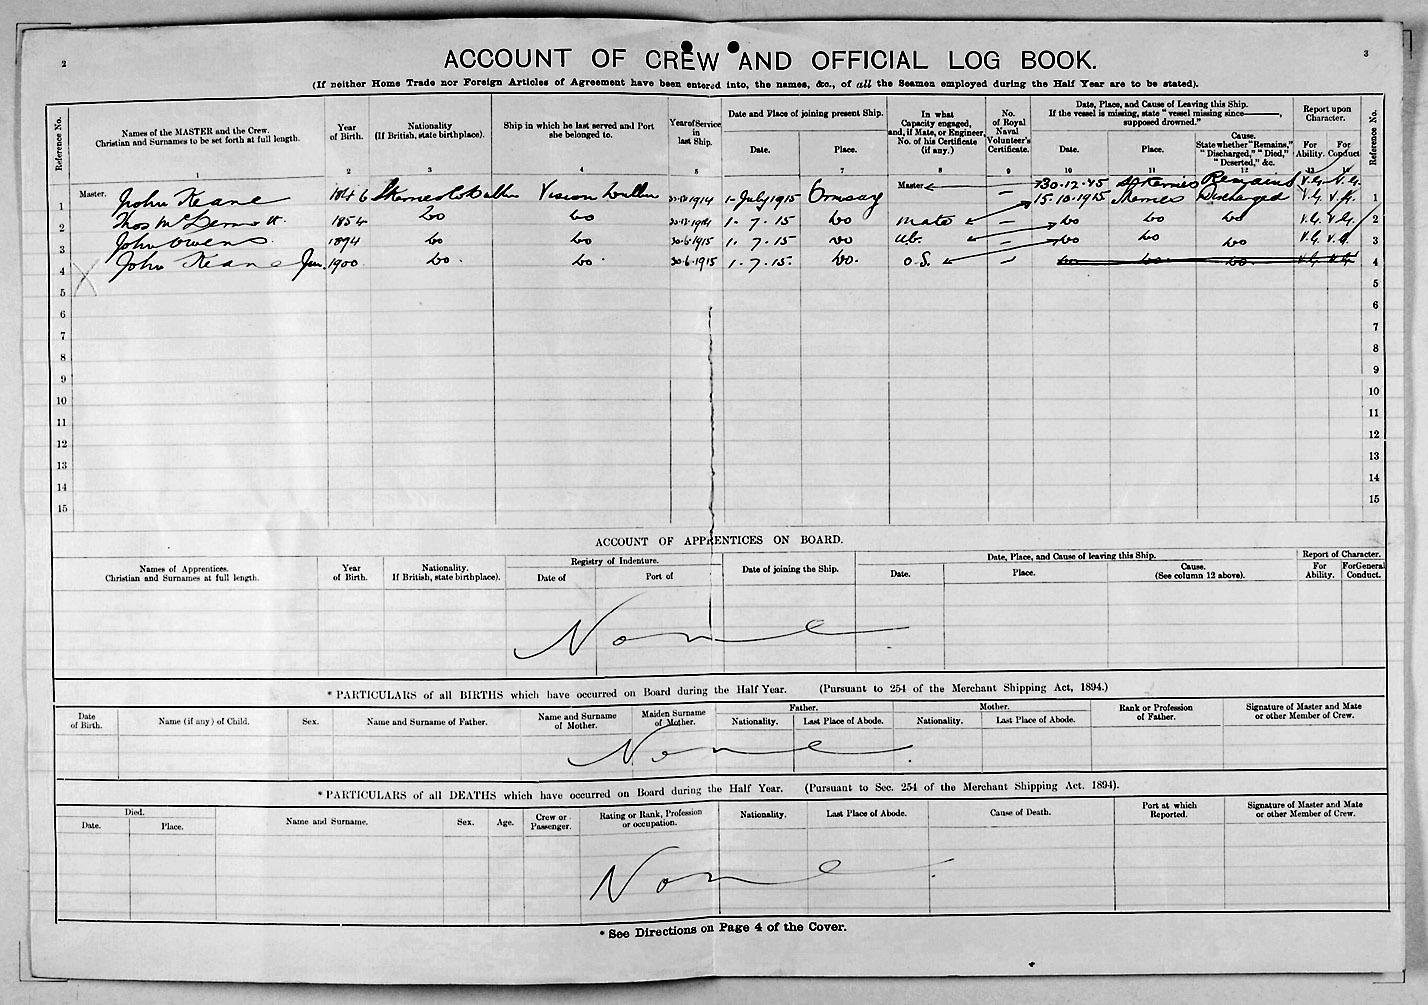 2
3
ACCOUNT OF CREW AND OFFICIAL LOG BOOK.
(If neither Home Trade nor Foreign Articles of Agreement have been entered into, the names, &c., of all the Seamen employed during the Half Year are to be stated).
Reference No.
Names of the MASTER and the Crew.
Christian and Surnames to be set forth at full length.
1
Year
of Birth.
2
Nationality
(If British, state birthplace).
3
Ship in which he last served and Port
she belonged to.
4
Year of Service
in
last Ship.
5
Date and Place of joining present Ship.
Date.
Place.
7
In what
Capacity engaged,
and, if Mate, or Engineer,
No. of his Certificate
(if any.)
8
No.
of Royal
Naval
Volunteer's
Certificate.
9
Date, Place, and Cause of Leaving this Ship.
If the vessel is missing, state "vessel missing since———,
supposed drowned."
Date.
10
Place.
11
Cause.
State whether "Remains,"
"Discharged," "Died,"
"Deserted," &c.
12
Report upon
Character.
For
Ability.
For
Conduct
Reference No.
30.12.15 Skerries Remains V.G. V.G.
1 Master. John Keane 1846 Skerries Co Dublin Vision Dublin 1914 1-July 1915 Master — 15.10.1915 Skerries Discharged V.G. V.G. 1
2 Thos McDermott 1854 Do Do 1914 1. 7. 15 Do Mate — Do Do Do V.G. V.G. 2
3 John Owens 1894 Do Do 30.6.1915 1. 7. 15 Do A.B. — Do Do Do V.G. V.G. 3
4 John Keane Jun. 1900 Do. Do. 30.6.1915 1. 7. 15. Do. O.S. — Do Do Do V.G. V.G. 4
5 5
6 6
7 7
8 8
9 9
10 10
11 11
12 12
13 13
14 14
15 15
ACCOUNT OF APPRENTICES ON BOARD.
Names of Apprentices.
Christian and Surnames at full length.
Year
of Birth.
Nationality.
If British, state birthplace).
Registry of Indenture.
Date of
Port of
Date of joining the Ship.
Date, Place, and Cause of leaving this Ship.
Date.
Place.
Cause.
(See column 12 above).
Report of Character.
For
Ability.
For General
Conduct.
None
* PARTICULARS of all BIRTHS which have occurred on Board during the Half Year. (Pursuant to 254 of the Merchant Shipping Act, 1894.)
Date
of Birth.
Name (if any) of Child.
Sex.
Name and Surname of Father.
Name and Surname
of Mother.
Maiden Surname
of Mother.
Father.
Nationality.
Last Place of Abode.
Mother.
Nationality.
Last Place of Abode.
Rank or Profession
of Father.
Signature of Master and Mate
or other Member of Crew.
None.
* PARTICULARS of all DEATHS which have occurred on Board during the Half Year. (Pursuant to Sec. 254 of the Merchant Shipping Act. 1894).
Died.
Date.
Place.
Name and Surname.
Sex.
Age.
Crew or
Passenger.
Rating or Rank, Profession
or occupation.
Nationality.
Last Place of Abode.
Cause of Death.
Port at which
Reported.
Signature of Master and Mate
or other Member of Crew.
None.
* See Directions on Page 4 of the Cover.